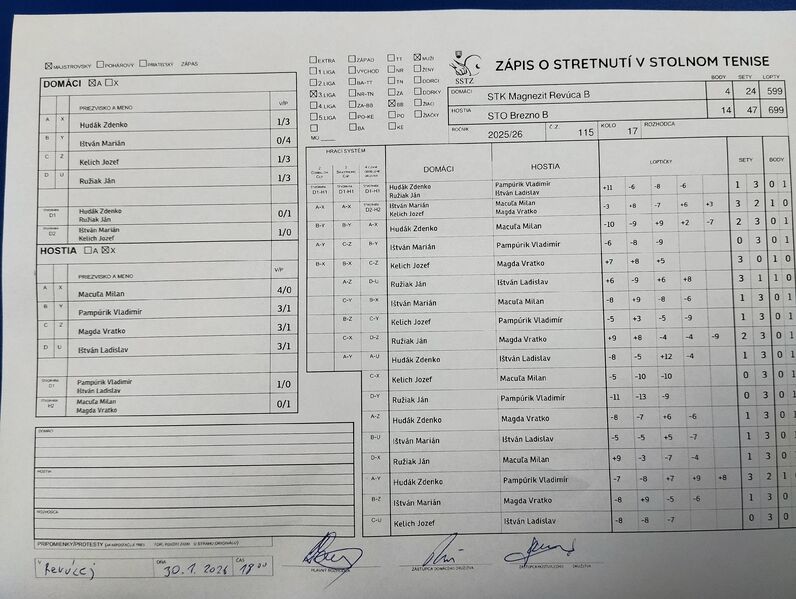 MAJSTROVSKÝ POHÁROVÝ PRIATEĽSKÝ ZÁPAS
EXTRA ZÁPAD TT MUŽI
1 LIGA VÝCHOD NR ŽENY
2.LIGA BA-TT TN DORCI
3.LIGA NR-TN ZA DORKY
4.LIGA ZA-BB BB ŽIACI
5.LIGA PO-KE PO ŽIAČKY
BA KE
MO
SSTZ
ZÁPIS O STRETNUTÍ V STOLNOM TENISE
BODY SETY LOPTY
DOMÁCI STK Magnezit Revúca B 4 24 599
HOSTIA STO Brezno B 14 47 699
ROČNÍK 2025/26 Č.Z. 115 KOLO 17 ROZHODCA
DOMÁCI A X
PRIEZVISKO A MENO V/P
A X Hudák Zdenko 1/3
B Y Ištván Marián 0/4
C Z Kelich Jozef 1/3
D U Ružiak Ján 1/3
D1 Hudák Zdenko Ružiak Ján 0/1
D2 Ištván Marián Kelich Jozef 1/0
HOSTIA A X
PRIEZVISKO A MENO V/P
A X Macuľa Milan 4/0
B Y Pampúrik Vladimír 3/1
C Z Magda Vratko 3/1
D U Ištván Ladislav 3/1
D1 Pampúrik Vladimír Ištván Ladislav 1/0
H2 Macuľa Milan Magda Vratko 0/1
DOMÁCI
HOSTIA
ROZHODCA
PRIPOMIENKY/PROTESTY
V Revúcej DŇA 30.1.2026 ČAS 18 00
HRACÍ SYSTÉM DOMÁCI HOSTIA LOPTIČKY SETY BODY
D1-H1 D1-H1 D1-H1 Hudák Zdenko Ružiak Ján Pampúrik Vladimír Ištván Ladislav +11 -6 -8 -6 1 3 0 1
A-X A-X D2-H2 Ištván Marián Kelich Jozef Macuľa Milan Magda Vratko -3 +8 -7 +6 +3 3 2 1 0
B-Y B-Y A-X Hudák Zdenko Macuľa Milan -10 -9 +9 +2 -7 2 3 0 1
A-Y C-Z B-Y Ištván Marián Pampúrik Vladimír -6 -8 -9 0 3 0 1
B-X B-X C-Z Kelich Jozef Magda Vratko +7 +8 +5 3 0 1 0
A-Z D-U Ružiak Ján Ištván Ladislav +6 -9 +6 +8 3 1 1 0
C-Y B-X Ištván Marián Macuľa Milan -8 +9 -8 -6 1 3 0 1
B-Z C-Y Kelich Jozef Pampúrik Vladimír -5 +3 -5 -9 1 3 0
C-X D-Z Ružiak Ján Magda Vratko +9 +8 -4 -4 -9 2 3 0
A-Y A-U Hudák Zdenko Ištván Ladislav -8 -5 +12 -4 1 3 0
C-X Kelich Jozef Macuľa Milan -5 -10 -10 0 3 0 1
D-Y Ružiak Ján Pampúrik Vladimír -11 -13 -9 0 3 0 1
A-Z Hudák Zdenko Magda Vratko -8 -7 +6 -6 1 3 0 1
B-U Ištván Marián Ištván Ladislav -5 -5 +5 -7 1 3 0 1
D-X Ružiak Ján Macuľa Milan +9 -3 -7 -4 1 3 0
A-Y Hudák Zdenko Pampúrik Vladimír -7 -8 +7 +9 +8 3 2 1
B-Z Ištván Marián Magda Vratko -8 +9 -5 -6 1 3 0
C-U Kelich Jozef Ištván Ladislav -8 -8 -7 0 3 0
HLAVNÝ ROZHODCA ZÁSTUPCA DOMÁCEHO DRUŽSTVA ZÁSTUPCA HOSŤUJÚCEHO DRUŽSTVA